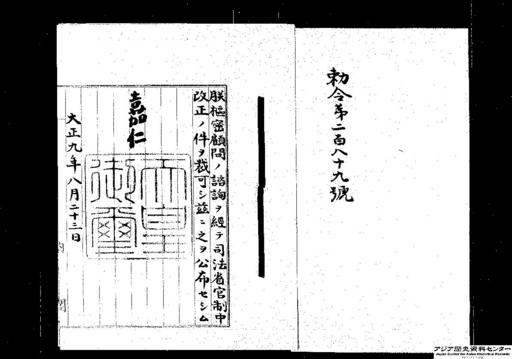 勅令第二百八十九號
朕樞密顧問ノ諮詢ヲ經テ司法省官制中
改正ノ件ヲ裁可シ茲ニ之ヲ公布セシム
嘉仁
天皇御璽
大正九年八月二十三日
内閣
アジア歴史資料センター
Japan Center for Asian Historical Records